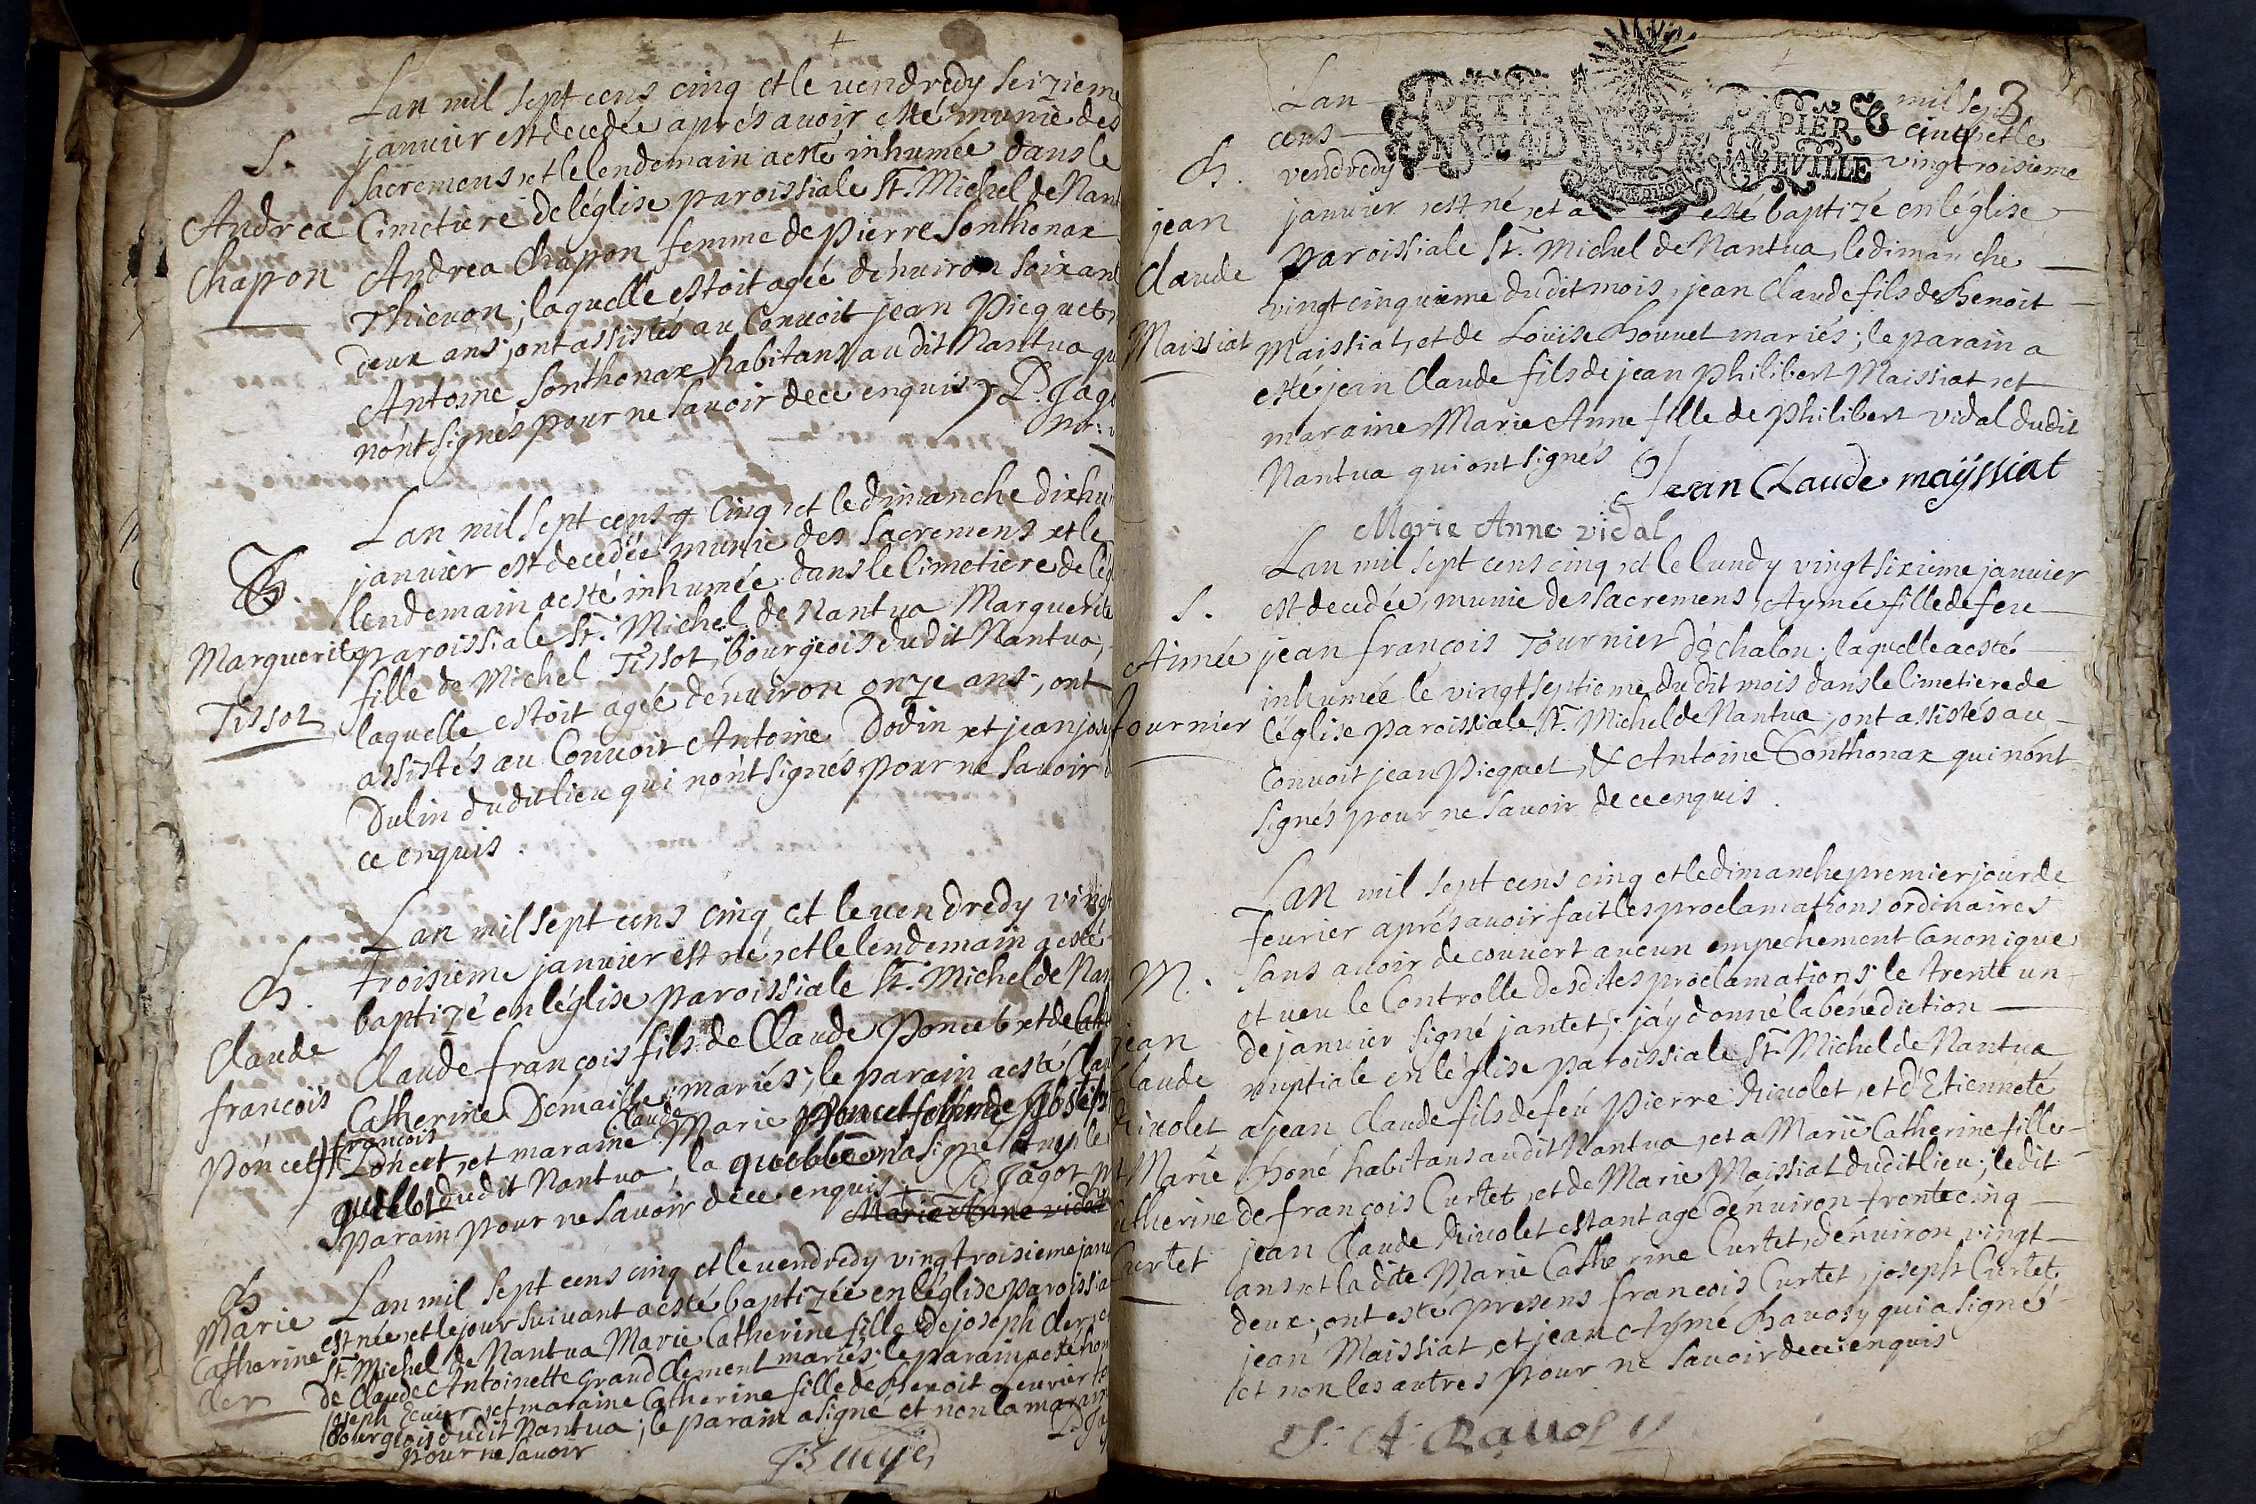 Lan mil sept cens cinq et le vendredy seizieme
janvier est decedée aprés avoir esté munie des
S.
sacremens et le lendemain a esté inhumée dans le
Andrea Cimetiere de léglise paroissiale St. Michel de Nant
Chapon Andrea Chapon femme de Pierre Sonthonax
Thievon; laquelle estoit agée dénviron soixant
deux ans; ont assistés au Convoit jean Picquet
Antoine Sonthonax habitans audit Nantua qu
nónt signés pour ne savoir de ce enquis P. Jago
Lan mil sept cens cinq et le dimanche dixhu
janvier est decedée munie des sacremens et le
lendemain a esté inhumée dans le Cimetiere de lég
Marguerite paroissiale St. Michel de Nantua Marguerite
fille de Michel Tissot, bourgeois dudit Nantua,
Tissot laquelle estoit agée dénviron onze ans; ont
assistés au Convoit Antoine Dodin et jean jose
Dulin dudit lieu qui nónt signés pour ne savoir d
ce enquis.
Lan mil sept cens cinq et le vendredy vingt
B. troisieme janvier est né, et le lendemain a esté
baptizé en léglise paroissiale St. Michel de Nan
Claude Claude françois fils de Claude Poncet et de
françois Catherine Demaille mariés; le parain a esté Clau
Poncet françois Poncet et maraine Claude Marie
dudit Nantua; la
parain pour ne savoir de ce enquis P. Jagot
Marie Anne vidal
B Lan mil sept cens cinq et le vendredy vingtroisieme janv
Marie est née, et le jour suivant a esté baptizée en léglise paroissia
Catherine St. Michel de Nantua Marie Catherine fille de joseph der et
der de Claude Antoinette Grand Clement mariés; le parain a esté hon
joseph et maraine Catherine fille de Benoit
Bourgeois dudit Nantua; le parain a signé et non la marain
pour ne savoir
3
Lan mil sept
PETIT PAPIER
cens cinq et le
B. vendredy vingtroisieme
jean janvier est né, et a esté baptizé en léglise
Claude paroissiale St. Michel de Nantua, le dimanche
vingtcinquieme dudit mois, jean Claude fils de Benoit
Maissiat Maissiat, et de Loüise Bouvet mariés; le parain a
esté jean Claude fils de jean philibert Maissiat et
maraine Marie Anne fille de philibert vidal dudit
Nantua qui ont signés Jean Claude maÿssiat
Marie Anne vidal
Lan mil sept cens cinq et le lundy vingtsixieme janvier
S. est decedée, munie des sacremens, Aymée fille de feu
Aimée jean françois Tournier déchalon; laquelle a esté
inhumée le vingtseptieme dudit mois dans le Cimetiere de
Tournier léglise paroissiale St. Michel de Nantua; ont assistés au
Convoit jean Picquet, & Antoine Sonthonax qui nónt
signés pour ne savoir de ce enquis.
Lan mil sept cens cinq et le dimanche premier jour de
fevrier aprés avoir fait les proclamations ordinaires
sans avoir decouvert aucun empechement Canonique
M. et veu le Controlle desdites proclamations; le trente un
jean de janvier signé jantet; jáy donné la bénédiction
Claude nuptiale en léglise paroissiale St. Michel de Nantua
Rivolet a jean Claude fils de feu Pierre Rivolet, et d'Etiennete
et Marie Boné habitans audit Nantua, et a Marie Catherine fille
Catherine de françois Curtet, et de Marie Maissiat dudit lieu; ledit
Curtet jean Claude Rivolet estant agé dénviron trente cinq
ans et la dite Marie Catherine Curtet, dénviron vingt
deux; ont esté presens françois Curtet, joseph Curtet,
jean Maissiat, et jean Aymé Ravosy qui a signé
et non les autres pour ne savoir de ce enquis
J. A. Ravosy